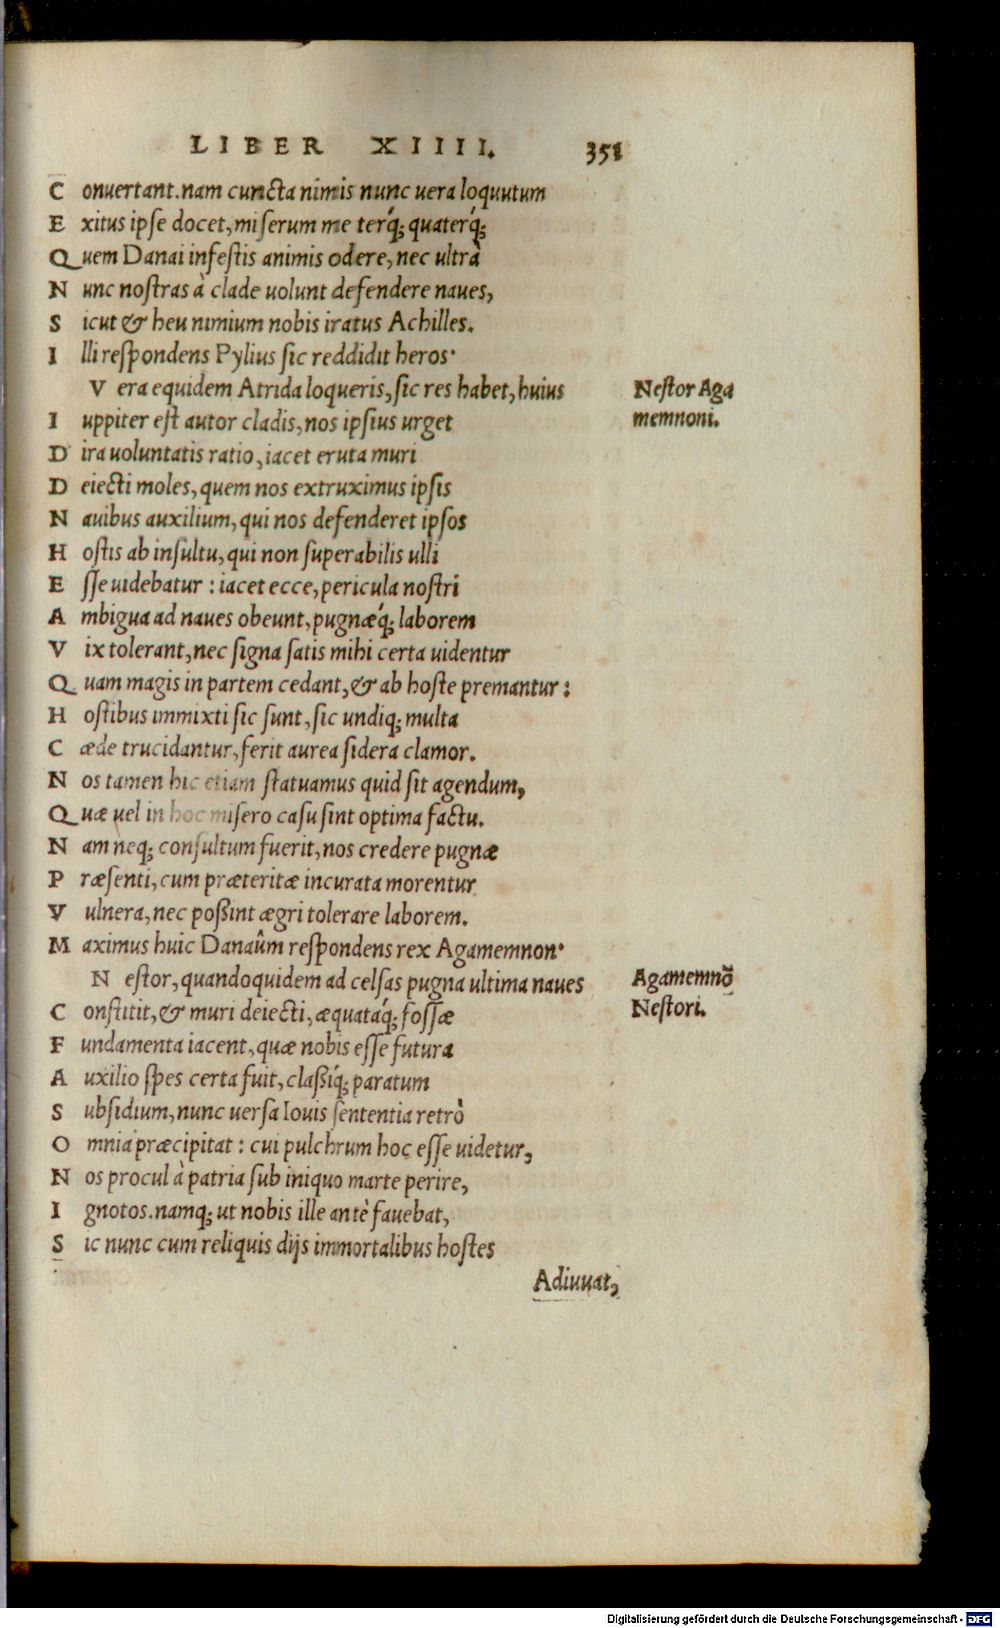 LIBER XIIII. 351
C onuertant.nam cuncta nimis nunc uera loquutum
E xitus ipse docet, miserum me terq́; quaterq́;
Q uem Danai infestis animis odere, nec ultrà
N unc nostras à clade uolunt defendere naues,
S icut & heu nimium nobis iratus Achilles.
I lli respondens Pylius sic reddidit heros·
V era equidem Atrida loqueris, sic res habet, huius
Nestor Aga
I uppiter est autor cladis, nos ipsius urget
memnoni.
D ira uoluntatis ratio, iacet eruta muri
D eiecti moles, quem nos extruximus ipsis
N auibus auxilium, qui nos defenderet ipsos
H ostis ab insultu, qui non superabilis ulli
E sse uidebatur : iacet ecce, pericula nostri
A mbigua ad naues obeunt, pugnæq́; laborem
V ix tolerant, nec signa satis mihi certa uidentur
Q uam magis in partem cedant, & ab hoste premantur :
H ostibus immixti sic sunt, sic undiq; multa
C æde trucidantur, ferit aurea sidera clamor.
N os tamen hic etiam statuamus quid sit agendum,
Q uæ uel in hoc misero casu sint optima factu.
N am neq; consultum fuerit, nos credere pugnæ
P ræsenti, cum præteritæ incurata morentur
V ulnera, nec poßint ægri tolerare laborem.
M aximus huic Danaûm respondens rex Agamemnon·
N estor, quandoquidem ad celsas pugna ultima naues
Agamemnõ
C onstitit, & muri deiecti, æquatáq; fossæ
Nestori.
F undamenta iacent, quæ nobis esse futura
A uxilio spes certa fuit, claßíq; paratum
S ubsidium, nunc uersa Iouis sententia retrò
O mnia præcipitat : cui pulchrum hoc esse uidetur,
N os procul à patria sub iniquo marte perire,
I gnotos.namq; ut nobis ille antè fauebat,
S ic nunc cum reliquis dijs immortalibus hostes
Adiuuat,
Digitalisierung gefördert durch die Deutsche Forschungsgemeinschaft - DFG